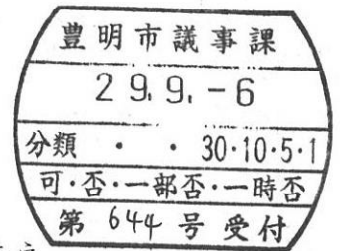 豊明市議事課
29.9.-6
分類 ・ ・ 30・10・5・1
可・否・一部否・一時否
第 644 号 受付